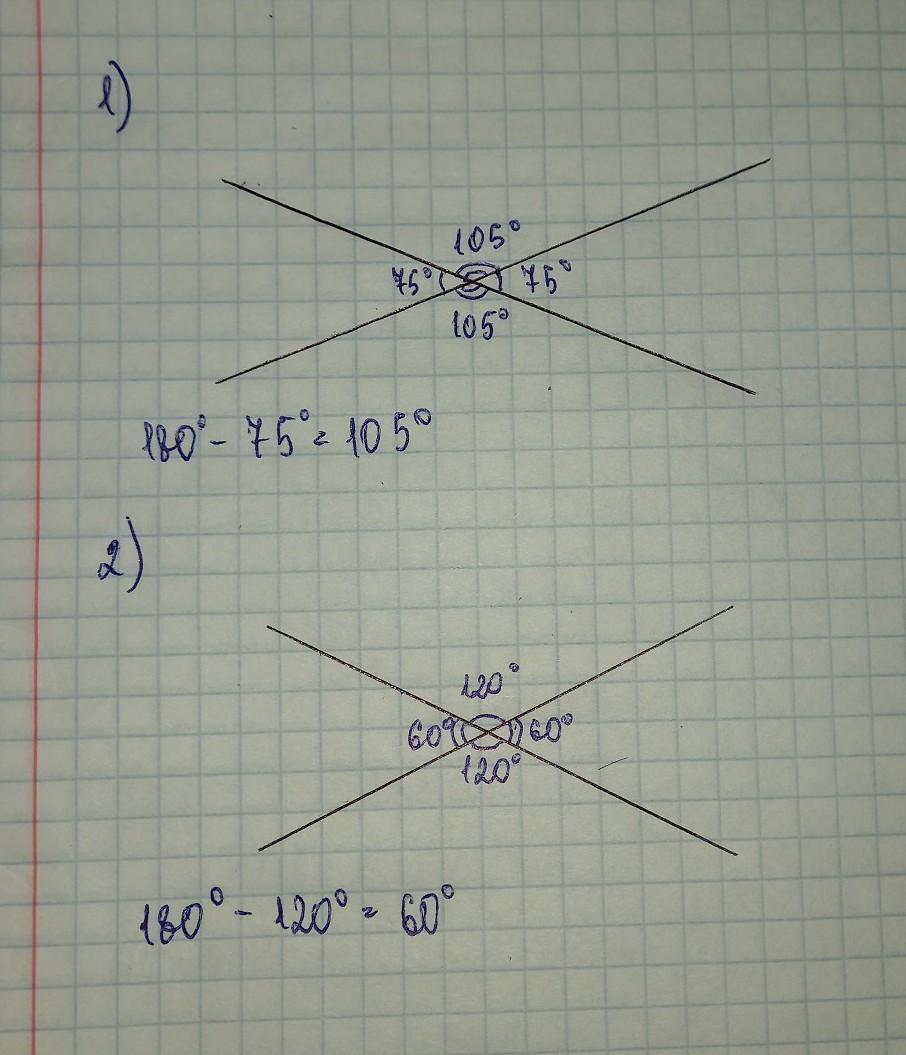 1)
105°
75° 75°
105°
180° - 75° = 105°
2)
120°
60° 60°
120°
180° - 120° = 60°